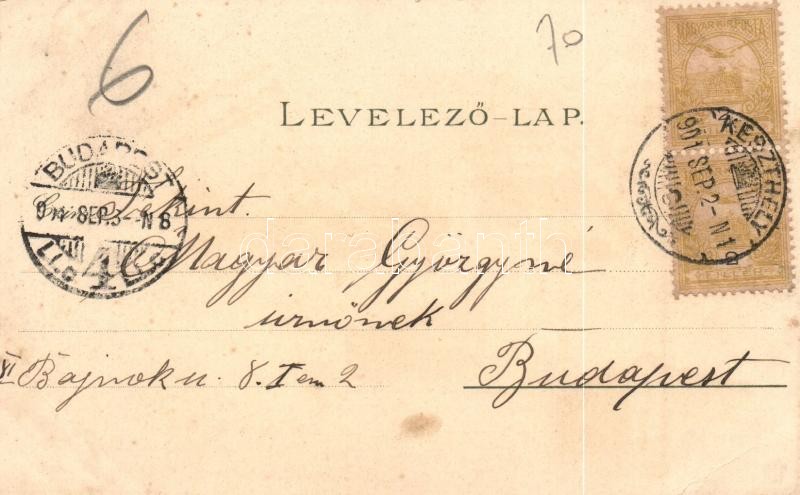 6
70
LEVELEZŐ-LAP.
MAGYAR KIR. POSTA
KESZTHELY
901 SEP 2-N1
BUDAPEST
901 SEP. 3-N8
4
Tekint.
Magyar Györgyné
úrnőnek
VI Bajnok u. 8. I em 2 Budapest
darabanth